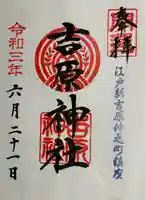 奉拝
江戸新吉原仲之町鎮座
吉原神社
令和三年
六月二十一日